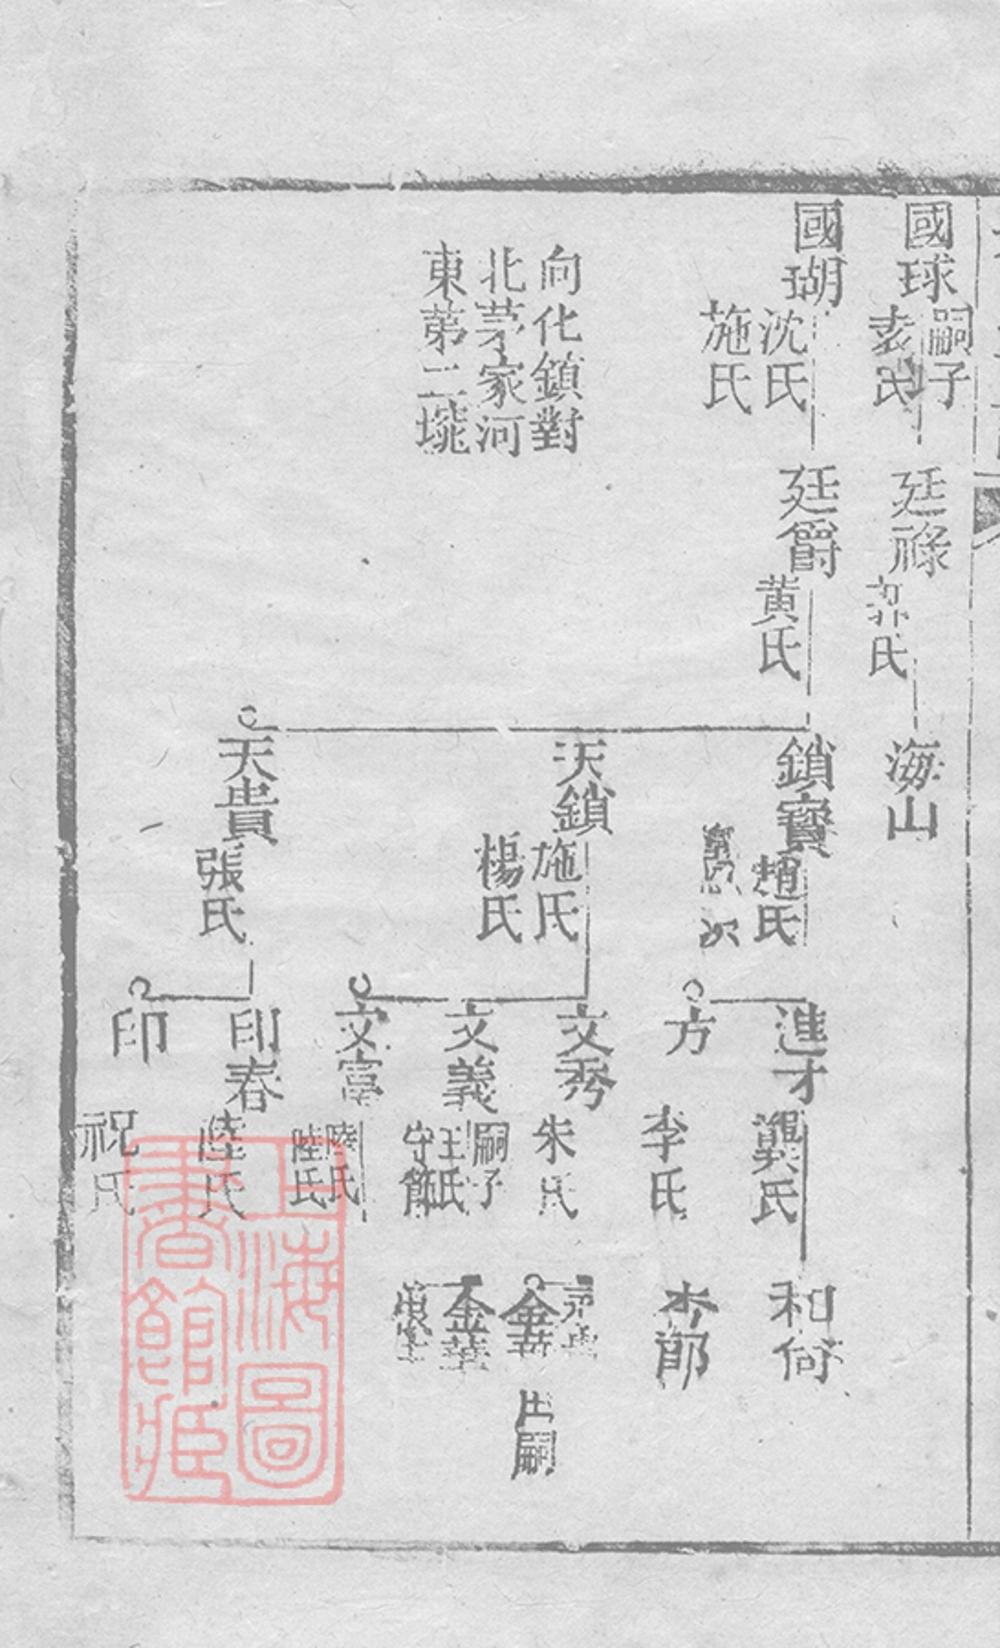 國球
嗣子
袁氏
廷祿
郭氏
海山
國瑚
沈氏
施氏
廷爵
黃氏
鎖寶
趙氏
進才
龔氏
和尚
方
李氏
向化鎮對
北茅家河
東第二垅
天鎖
施氏
楊氏
文秀
朱氏
出嗣
文義
嗣子
王氏
守節
金華
文富
陸氏
陸氏
天貴
張氏
印春
陸氏
印
祝氏
上海圖
書館藏